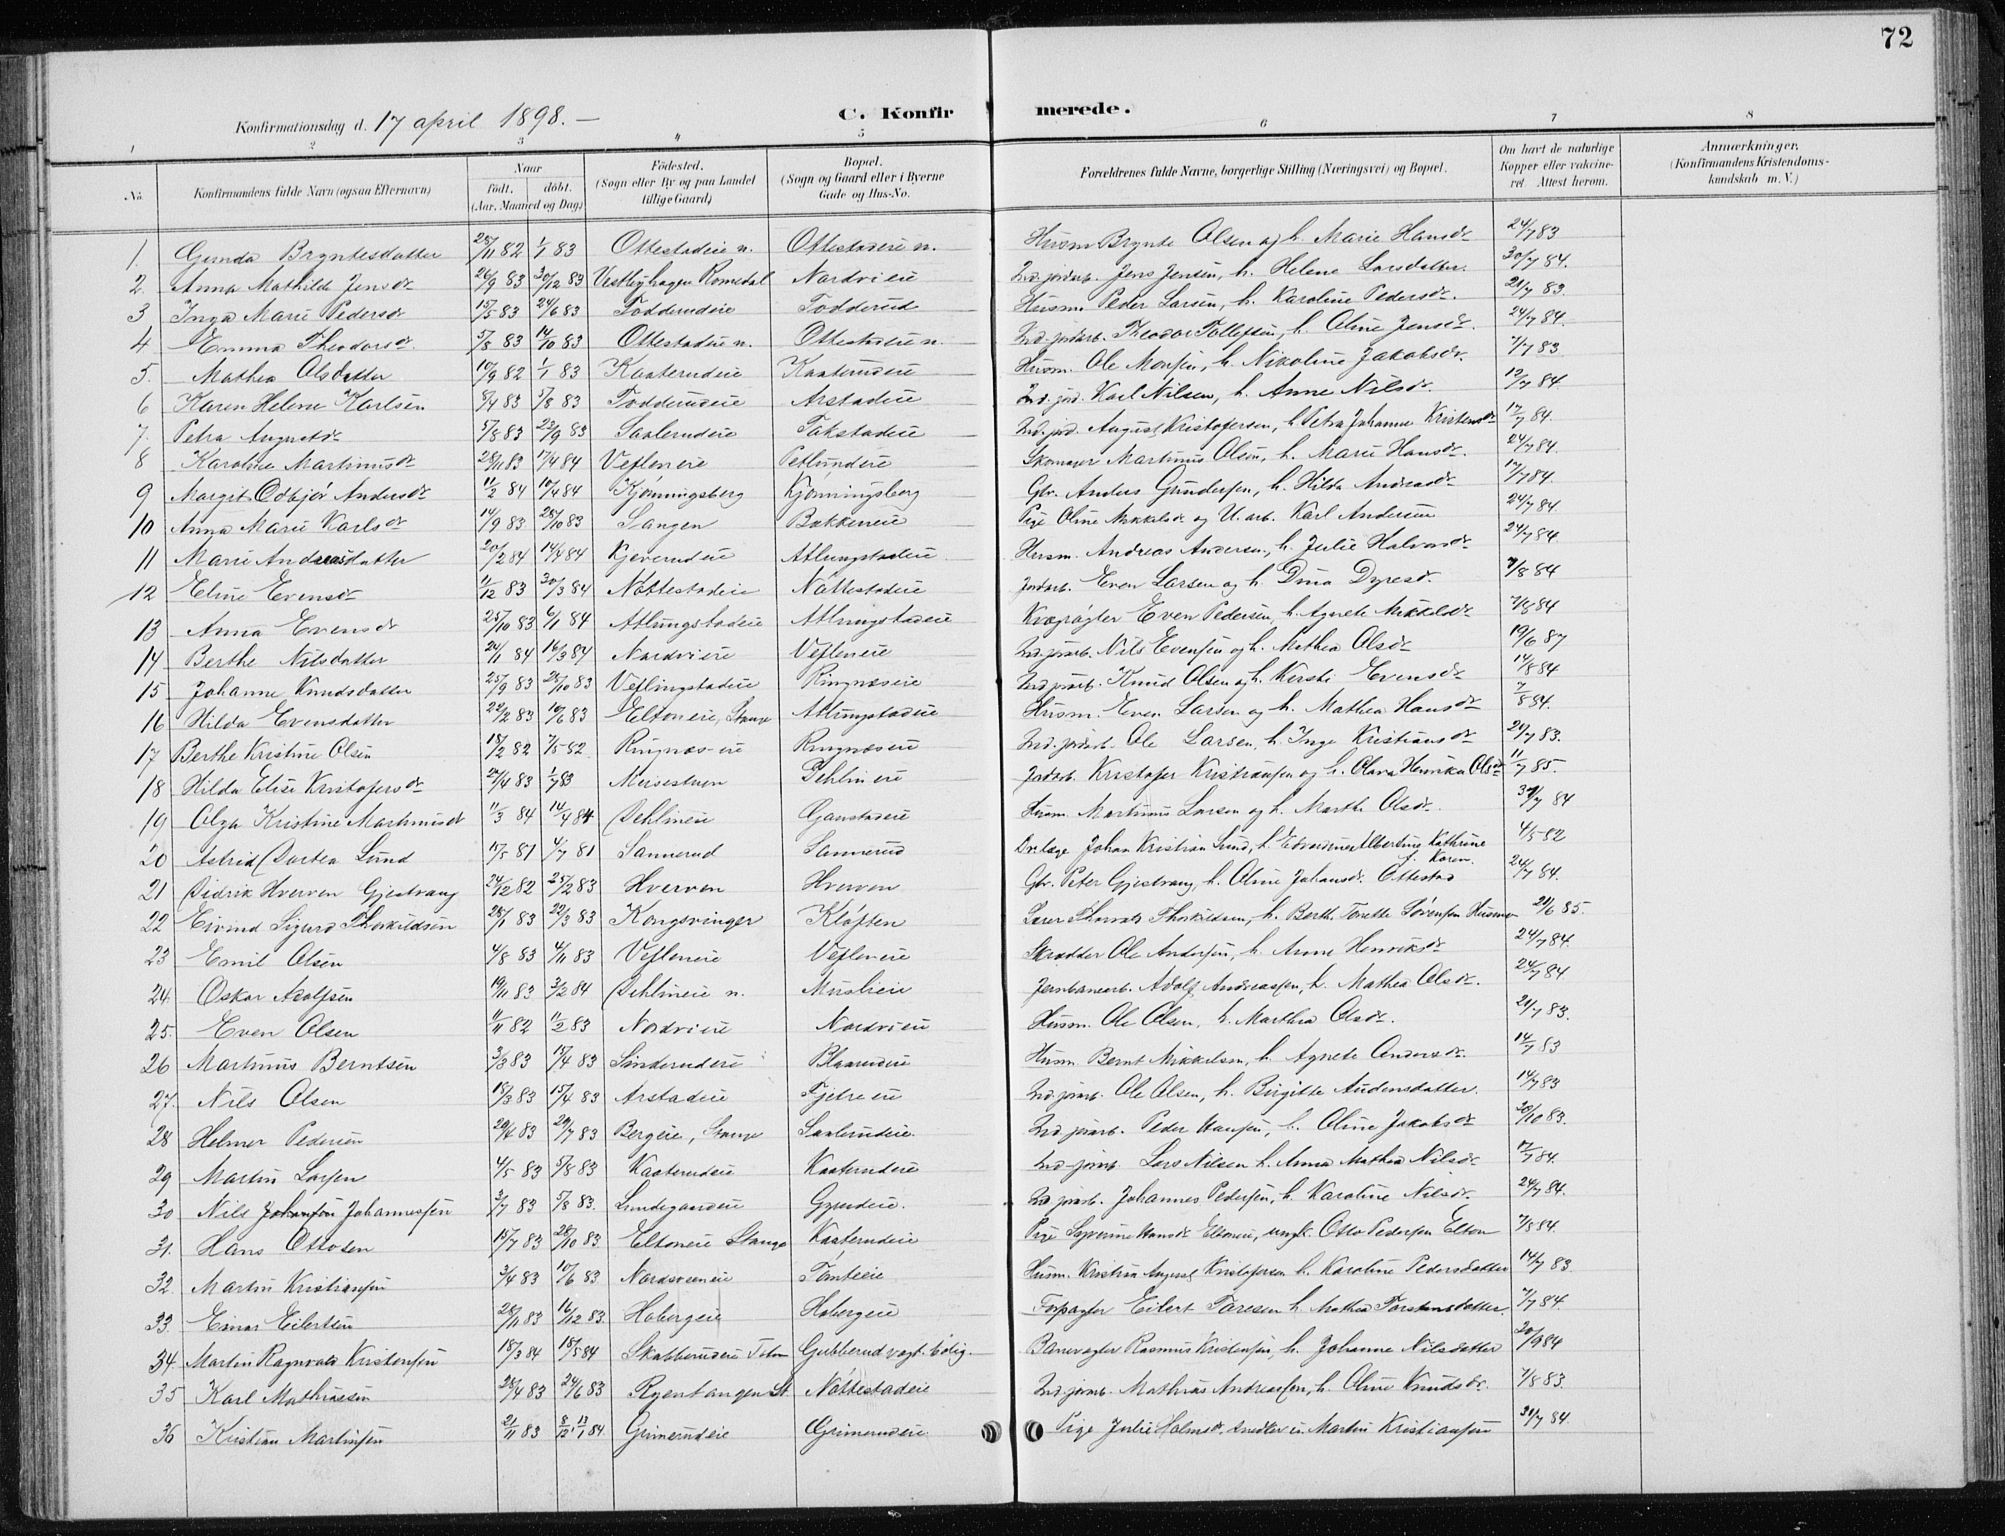 72
Konfirmationsdag d. 17 april 1898. —
C. Konfirmerede.
1 2 3 4 5 6 7 8
No.
Konfirmandens fulde Navn (ogsaa Efternavn)
Naar
födt. döbt.
(Aar, Maaned og Dag)
Födested.
(Sogn eller By og paa Landet
tillige Gaard)
Bopæl.
(Sogn og Gaard eller i Byerne
Gade og Hus-No.
Forældrenes fulde Navne, borgerlige Stilling (Næringsvei) og Bopæl.
Om havt de naturlige
Kopper eller vakcine-
ret. Attest herom.
Anmærkninger.
(Konfirmandens Kristendoms-
kundskab m. V.)
1. Gunda Bryntesdatter 28/11 82 1/1 83 Ottestadeie n. Ottestadeie n. Husm Brynte Olsen og h. Marie Hansdr 24/7 83
2. Anna Mathilde Jensdr 26/9 83 30/12 83 Vestbyhagen Romedal Nordvieie Ind. jordarb. Jens Jensen, h. Helene Larsdatter. 30/7 84.
3 Inga Marie Pedersdr 15/5 83 24/6 83 Fodderudeie Fodderud Husm. Peder Larsen, h. Karoline Pedersdr. 21/7 83.
4 Emma Theodorsdr. 5/8 83 14/10 83 Ottestadeie n. Ottestadeie n. Ind. jordarb. Theodor Tollefsen, h. Oline Jensdr. 24/7 84.
5. Mathea Olsdatter 10/9 82 1/1 83 Kaaterudeie Kaaterudeie Husm. Ole Monsen, h. Nikoline Jakobsdr. 7/7 83
6 Karen Helene Karlsen 8/4 83 5/8 83 Fodderudeie Arstadeie Ind. jord. Karl Nilsen, h. Anne Nilsdr. 12/7 84
7. Petra Augustdr 5/8 83 23/9 83 Saalerudeie Fokstadeie Ind. jord. August Kristofersen, h. Petra Johanne Kristensdr 17/7 84.
8 Karoline Martinusdr 28/11 83 17/4 84 Vefleneie Petlundeie Skomager Martinus Olsen, h. Marie Hansdr. 24/7 84.
9 Margit Odbjør Andersdr 11/2 84 10/4 84 Kjønningsberg Kjønningsberg Gbr. Anders Gundersen, h. Hilda Andreasdr 17/7 84.
10 Anna Marie Karlsdr 14/9 83 28/10 83 Sangen Bakkeneie Pige Oline Mikkelsdr og U. arb. Karl Andersen 24/7 84
11 Marie Andreasdatter 20/2 84 14/4 84 Kjeverudeie Atlungstadeie Husm. Andreas Andersen, h. Julie Halvorsdr 24/7 84.
12 Eline Evensdr 11/12 83 30/3 84 Nøttestadeie Nøttestadeie Jordarb. Even Larsen og h. Dina Dyresdr. 7/8 84
13 Anna Evensdr 25/10 83 6/1 84 Atlungstadeie Atlungstadeie Kvægrøgter Even Pedersen, h. Agnete Mikkelsdr 7/8 84
14 Berthe Nilsdatter 24/1 84 16/3 84 Nordvieie Vefleneie Ind. jordarb. Nils Evensen og h. Mathea Olsdr 19/6 87
15 Johanne Knudsdatter 25/9 83 28/10 83 Veflingstadeie Ringnæseie Ind. jordarb. Knud Olsen og h. Kersti Evensdr 14/8 84
16 Hilda Evensdatter 22/2 83 10/6 83 Eltoneie, Stange Atlungstadeie Husm. Even Larsen og h. Mathea Hansdr 7/8 84.
17 Berthe Kristine Olsen 18/2 82 7/5 82 Ringnæs-eie Ringnæseie Ind. jordarb. Ole Larsen, h. Inge Kristiansdr 21/7 83.
18 Hilda Elise Kristofersdr 24/4 83 1/7 83 Musestuen Dehlineie Jordarb. Kristofer Kristiansen og h. Olava Henrikka Olsdr 11/7 85.
19 Olga Kristine Martinusdr 11/3 84 14/4 84 Dehlineie Gaustadeie Husm. Martinus Larsen og h. Marthe Olsdr. 31/7 84
20 Astrid Dortea Lund 17/5 81 4/7 81 Sannerud Sannerud Dr. læge Johan Kristian Lund, h. Edvardine Albertine Kathrine 4/5 82
21 Didrik Hverven Gjestvang 24/12 82 25/2 83 Hverven Hverven Gbr. Peter Gjestvang, h. Oline Johansdr. Ottestad f. Koren. 24/7 84.
22 Eivind Sigurd Thorkildsen 28/1 83 22/3 83 Kongsvinger Kløften Lærer Thorvald Thorkildsen, h. Berth. Tonette Sørensen Husmo 21/6 85.
23 Emil Olsen 4/8 83 4/11 83 Vefleneie Vefleneie Skrædder Ole Andersen, h. Anne Henriksdr 24/7 84.
24. Oskar Adolfsen 19/11 83 3/2 84 Dehlineie n. Muslieie Jernbanearb. Adolf Andreassen, h. Mathea Olsdr. 24/7 84
25. Even Olsen 11/11 82 11/2 83 Nordvieie Nordvieie Husm. Ole Olsen, h. Marthea Olsdr. 21/7 83.
26 Martinus Berntsen 3/3 83 15/4 83 Sinderudeie Blaarudeie Husm Bernt Mikkelsen, h. Agnete Andersdr. 14/7 83
27. Nils Olsen 18/3 83 15/4 83 Arstadeie Fjetreeie Ind. jordarb. Ole Olsen, h. Birgitte Audensdatter. 14/7 83
28 Helmer Pedersen 20/6 83 29/7 83 Bergeie, Stange Saalerudeie. Ind jordarb. Peder Hansen, h. Oline Jakobsdr 20/10 83.
29 Martin Larsen 4/5 83 5/8 83 Kaaterudeie Kaaterudeie Ind-jordarb. Lars Nilsen h. Anna Mathea Nilsdr. 17/7 84.
30 Nils Johansen Johannessen 3/7 83 5/8 83. Lundegaardeie Gyrudeie. Ind jordarb. Johannes Pedersen, h. Karoline Nilsdr. 24/7 84.
31. Hans Ottosen 15/7 83 28/10 83. Eltoneie Stange Kaaterudeie Pige Syverine Hansdr Eltoneie, ungk. Otto Pedersen Elton 7/8 84.
32. Martin Kristiansen 3/4 83 10/6 83 Nordsveeneie Tomteeie Husm. Kristian August Kristofersen h. Karoline Pedersdatter 14/7 83.
33. Einar Eilertsen 28/11 83 16/12 83. Hobergeie Hobergeie Forpagter Eilert Toresen h. Mathea Torstensdatter 7/7 84.
34. Martin Ragnvald Kristensen 18/3 84 18/5 84 Skabberudeie Gubberud vogt. bolig. Banevogter Rasmus Kristensen, h. Johanne Nilsdatter 20/9 84
35 Karl Mathiassen 28/4 83 24/6 83 Ryentangen St. Nøttestadeie Ind. jordarb. Mathias Andreassen, h. Oline Knudsdr. 7/8 83.
36 Kristian Martinsen 21/11 83 8/12 13/1 84 Grimerudeie Grimerudeie. Pige Julie Holmsdr, Snedker sv. Martin Kristiansen 31/7 84.